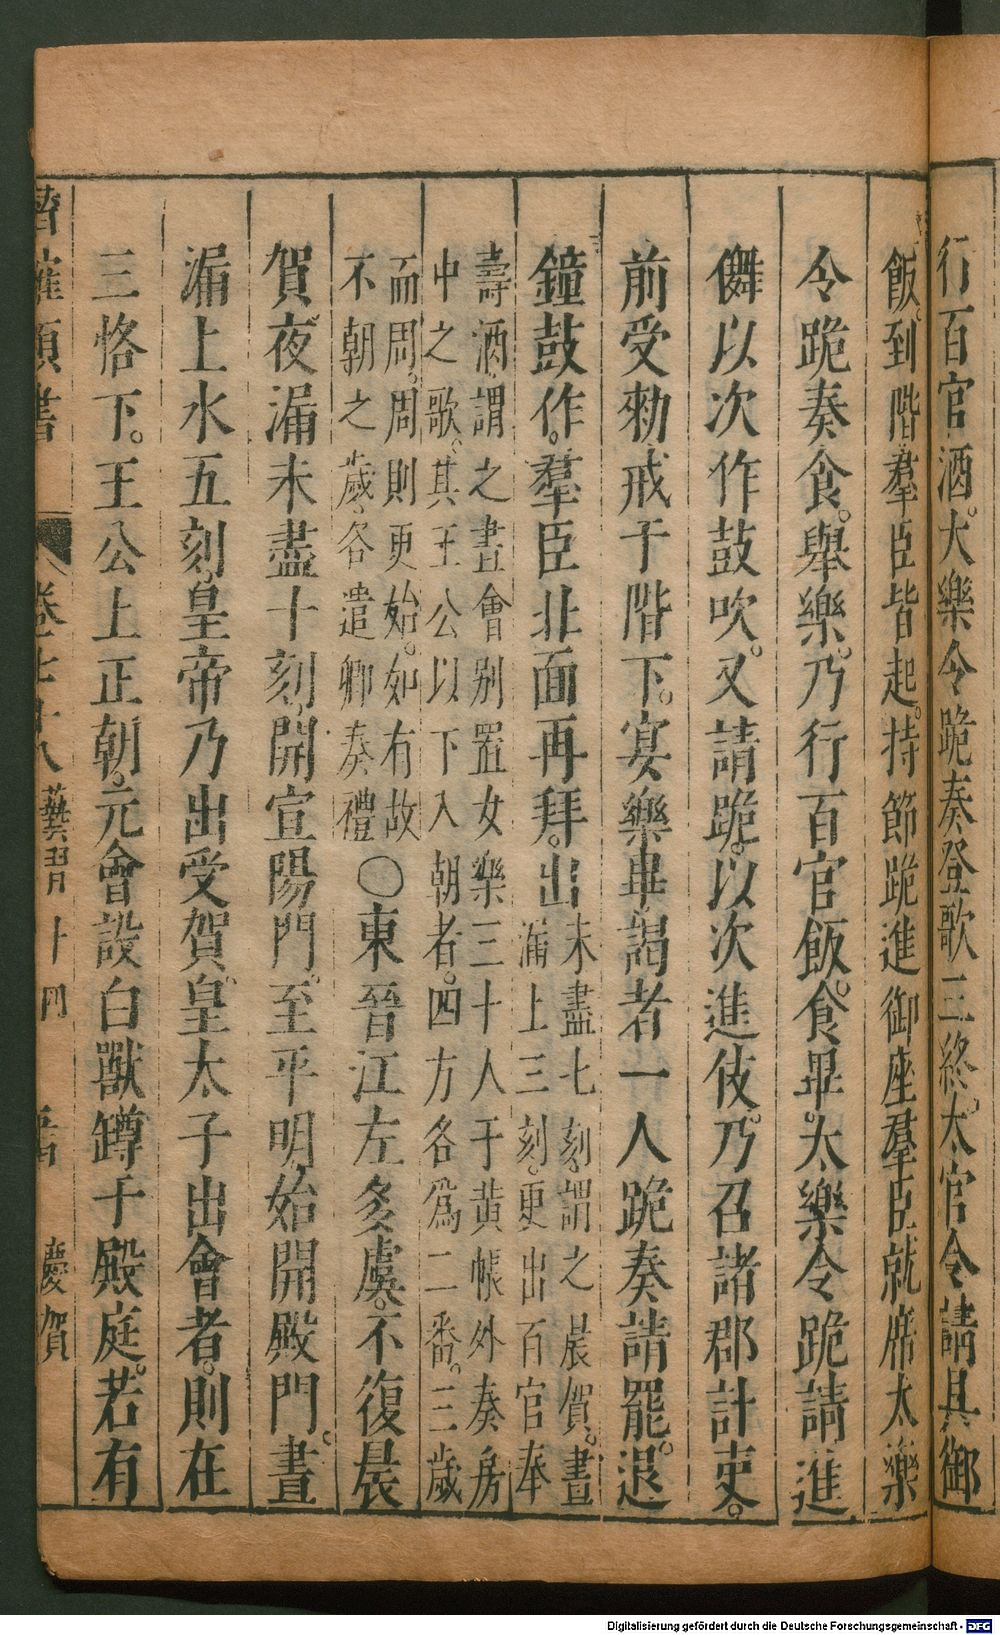 行百官酒。大樂令跪奏登歌三終。太官令請具御
飯。到階羣臣皆起。持節跪進御座羣臣就席太樂
令跪奏食。舉樂。乃行百官飯。食畢。太樂令跪請進
儛以次作鼓吹。又請跪。以次進伎。乃召諸郡計吏。
前受勑戒于階下。宴樂畢。謁者一人跪奏請罷。退
鐘鼓作。羣臣北面再拜。出
未盡七刻。謂之晨賀。晝
漏上三刻。更出百官奉
壽酒。謂之晝會别置女樂三十人于黄帳外奏房
中之歌。其王公以下入朝者。四方各爲二番。三歲
而周。周則更始。如有故
不朝之歲。各遣卿奏禮
○東晉江左多虞。不復晨
賀。夜漏未盡十刻。開宣陽門。至平明。始開殿門。晝
漏上水五刻。皇帝乃出受賀。皇太子出會者。則在
三恪下。王公上正朝。元會設白獸罇于殿庭。若有
潛確類書 卷七十八 藝習十四 慶賀
Digitalisierung gefördert durch die Deutsche Forschungsgemeinschaft - DFG